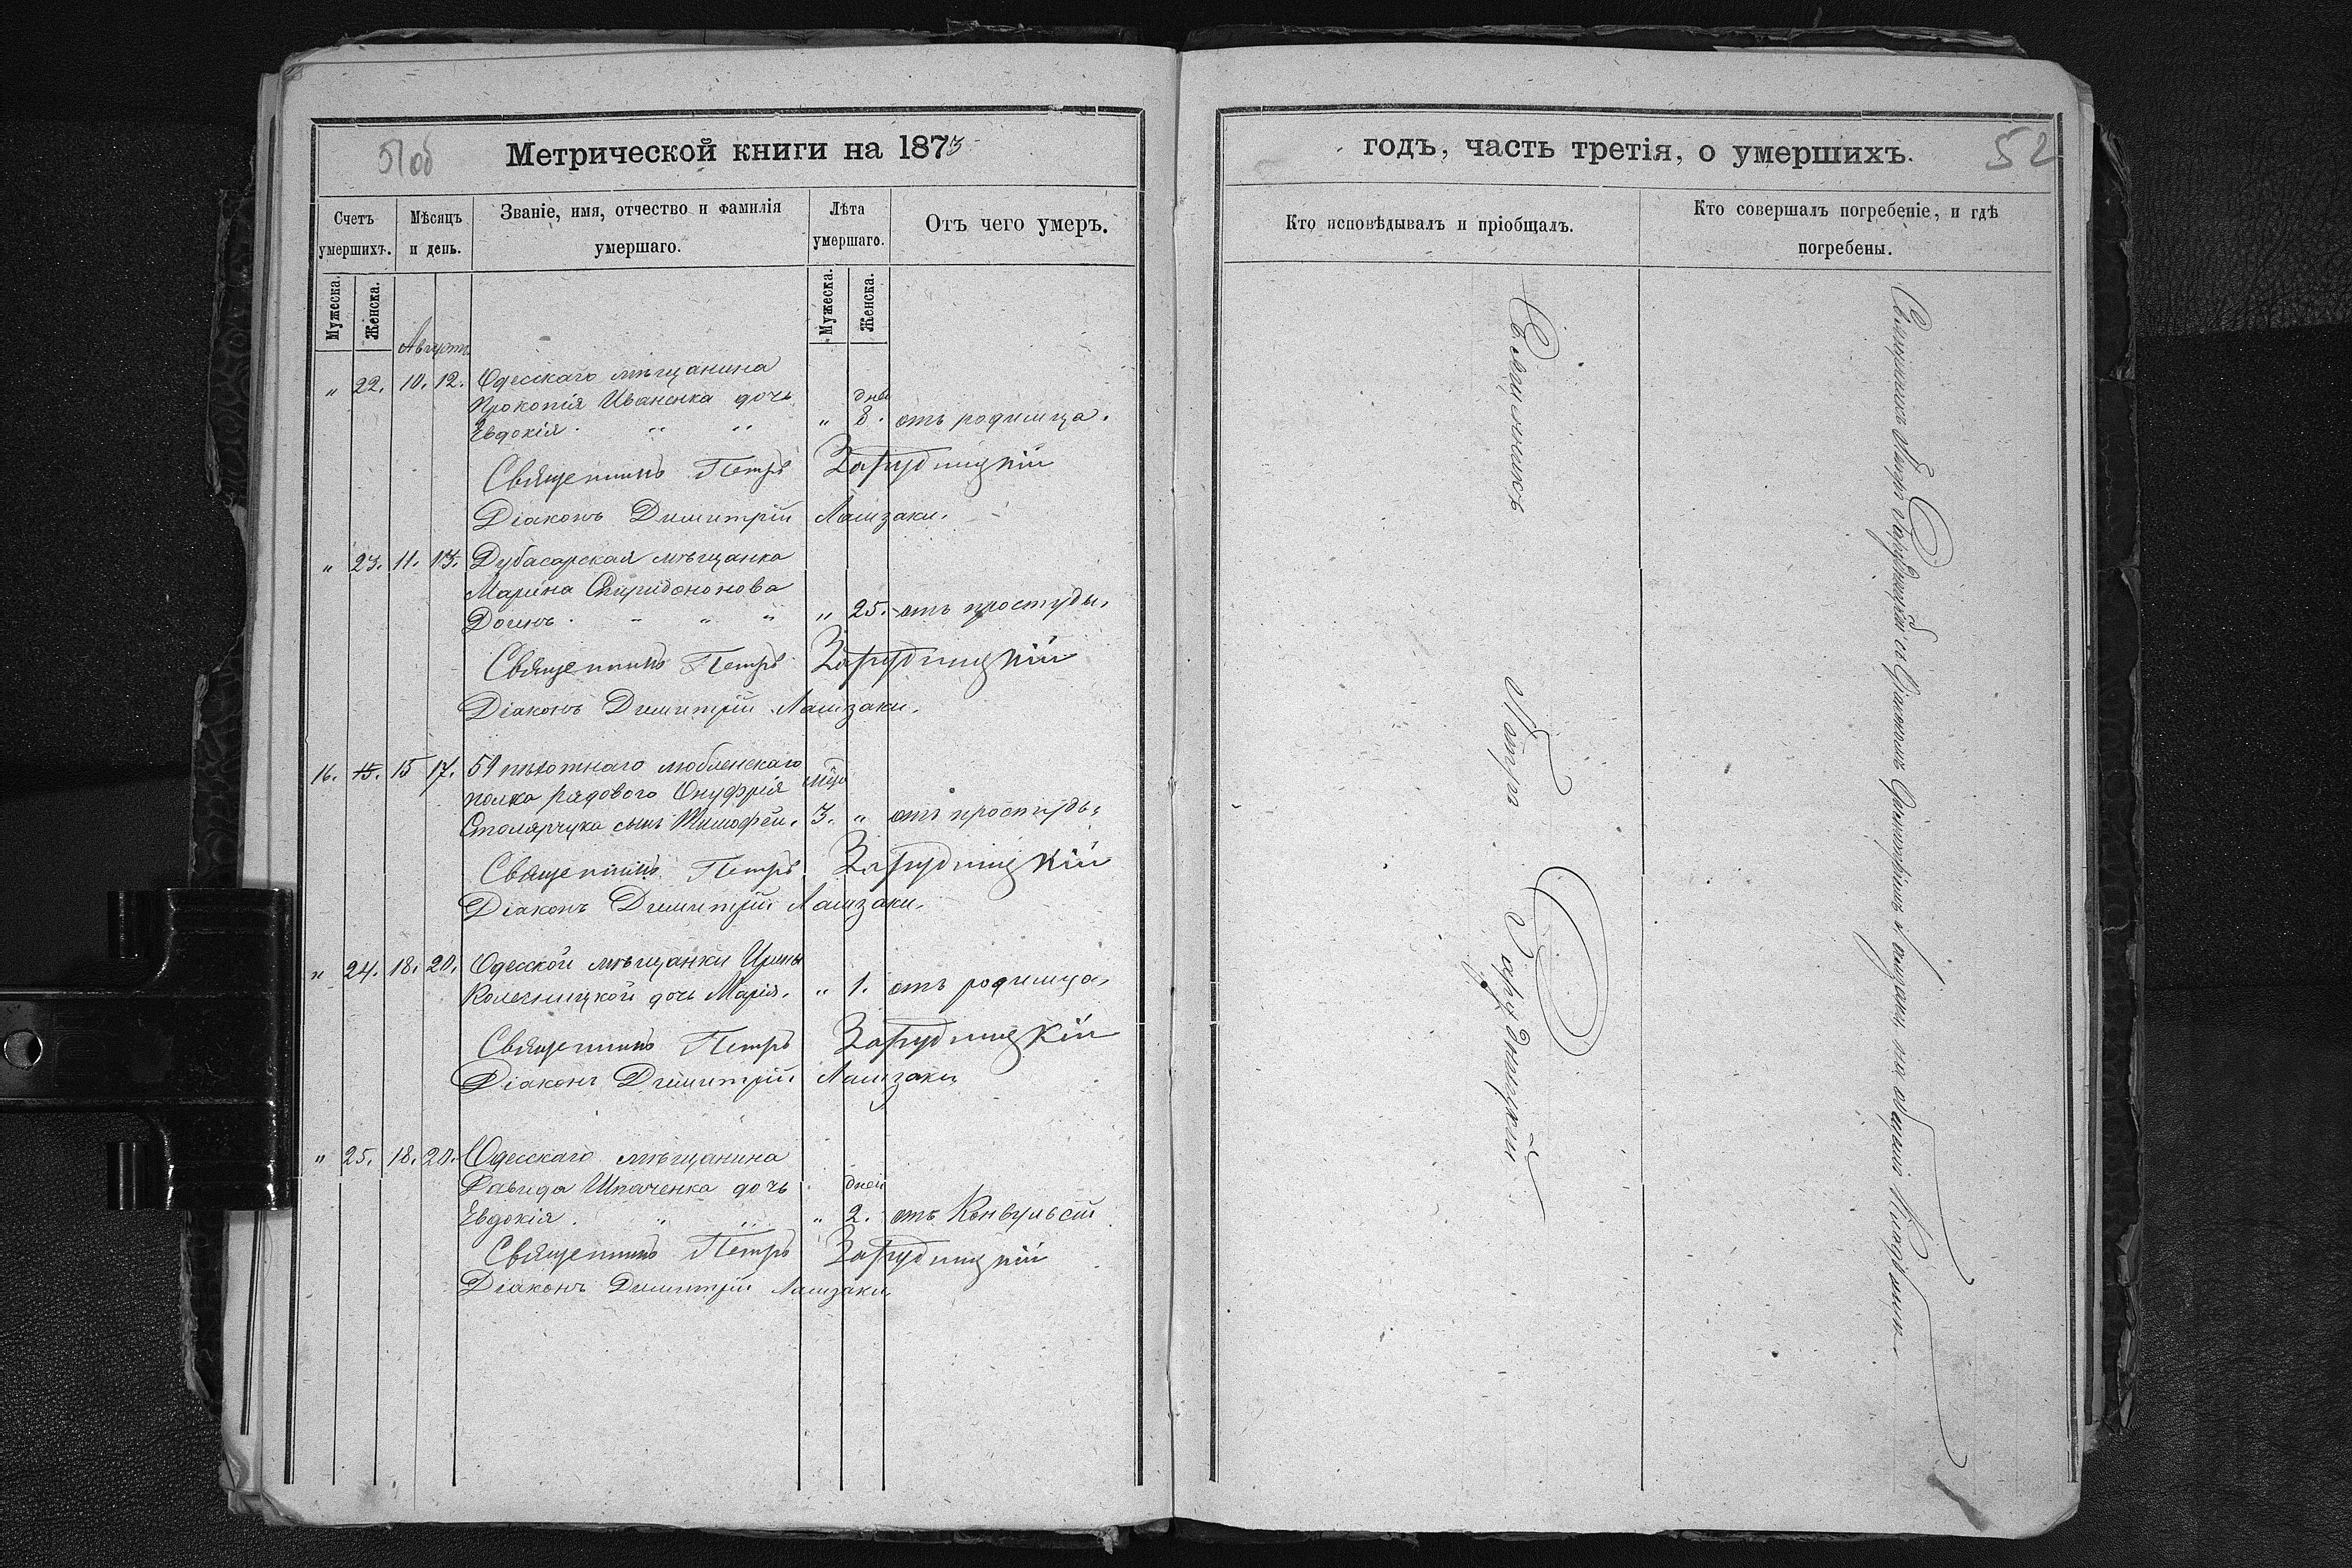 51 об
Метрической книги на 1873
Счетъ умершихъ.
Мѣсяцъ и день.
Званіе, имя, отчество и фамилія умершаго.
Лѣта умершаго.
Отъ чего умеръ.
Мужеска.
Женска.
Мужеска.
Женска.
Августъ
„ 22. 10. 12. Одесскаго мѣщанина
Прокопія Иваненка дочь дней
Евдокія. „ „ „ 8. отъ родимца.
Священникъ Петръ Зарудницкій
Діаконъ Димитрій Лашзаки.
„ 23. 11. 13. Дубасарская мѣщанка
Марина Спиридонова
„ „ „ „ 25. отъ простуды.
Священникъ Петръ Зарудницкій
Діаконъ Димитрій Лашзаки.
16. 15. 15 17. 59 пѣхотнаго любленскаго
полка рядового Онуфрія мѣс
Столярчука сынъ Тимофей. 3. „ отъ простуды
Священникъ Петръ Зарудницкій
Діаконъ Димитрій Лашзаки.
„ 24. 18. 20. Одесской мѣщанки Ирины
дочь Марія. „ 1. отъ родимца.
Священникъ Петръ Зарудницкій
Діаконъ Димитрій Лашзаки
„ 25. 18. 20. Одесскаго мѣщанина
Давида Шпаченка дочь дней
Евдокія. „ „ „ 2. отъ Конвульсій
Священникъ Петръ Зарудницкій
Діаконъ Димитрій Лашзаки
годъ, часть третія, о умершихъ.
52
Кто исповѣдывалъ и пріобщалъ.
Кто совершалъ погребеніе, и гдѣ погребены.
Священникъ Петръ Зарудницкій
Священникъ Петръ Зарудницкій съ Діакономъ Димитріемъ Лашзаки, на общемъ Кладбищѣ